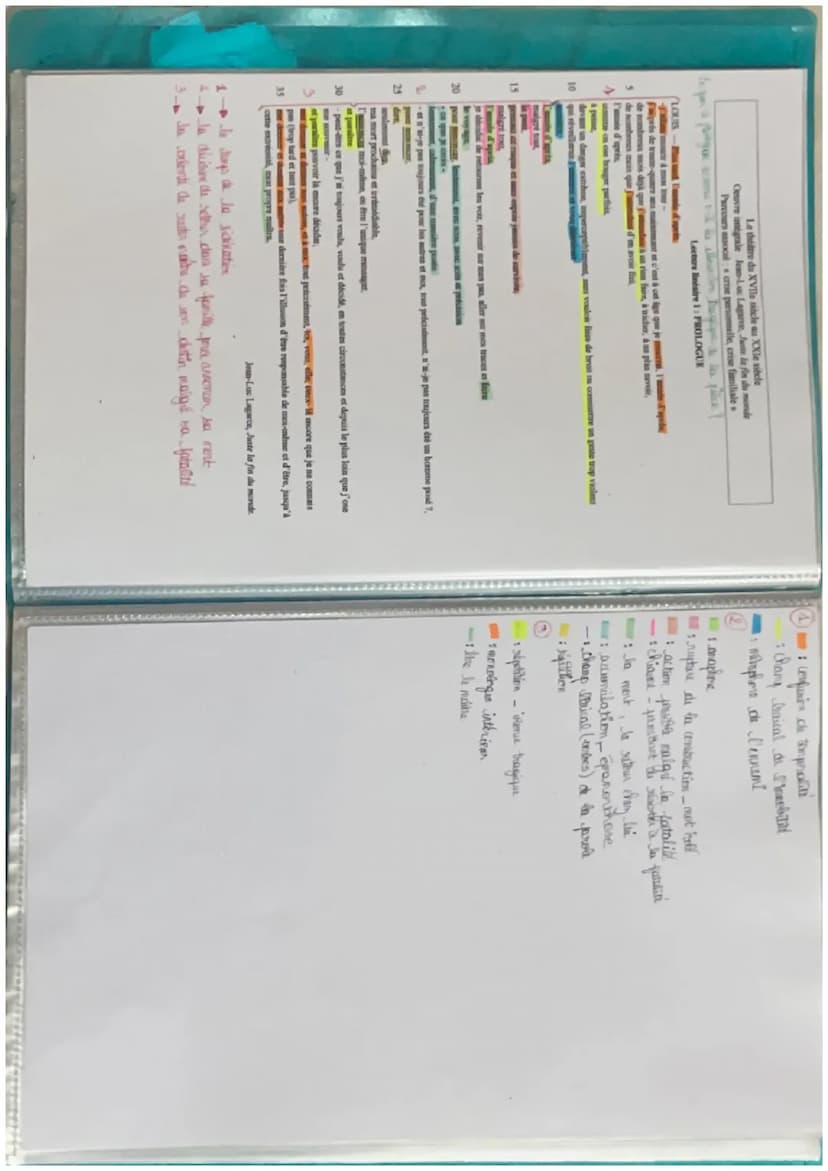 Le théâtre du XVIIe siècle au XXIe siècle
Oeuvre intégrale Jean-Luc Lagarce, Juste la fin du monde
Parcours associé : « crise personnelle, crise familiale »
Lecture linéaire 1 : PROLOGUE
LOUIS. — Plus tard, l'année d'après
- j'allais mourir à mon tour -
j'ai près de trente-quatre ans maintenant et c'est à cet âge que je mourrai, l'année d'après,
de nombreux mois déjà que j'attendais à ne rien faire, à tricher, à ne plus savoir,
5 de nombreux mois que j'attendais d'en avoir fini,
l'année d'après,
comme on ose bouger parfois,
à peine,
devant un danger extrême, imperceptiblement, sans vouloir faire de bruit ou commettre un geste trop violent
10 qui réveillerait l'ennemi et vous détruirait aussitôt,
l'année d'après,
malgré tout,
la peur,
15 prenant ce risque et sans espoir jamais de survivre,
malgré tout,
l'année d'après,
je décidai de retourner les voir, revenir sur mes pas, aller sur mes traces et faire
le voyage,
20 pour annoncer, lentement, avec soin, avec soin et précision
- ce que je crois -
lentement, calmement, d'une manière posée
- et n'ai-je pas toujours été pour les autres et eux, tout précisément, n'ai-je pas toujours été un homme posé ?,
pour annoncer,
25 dire,
seulement dire,
ma mort prochaine et irrémédiable,
l'annoncer moi-même, en être l'unique messager,
et paraître
30 - peut-être ce que j'ai toujours voulu, voulu et décidé, en toutes circonstances et depuis le plus loin que j'ose
me souvenir -
et paraître pouvoir là encore décider,
me donner et donner aux autres, et à eux, tout précisément, toi, vous, elle, ceux-là encore que je ne connais
pas (trop tard et tant pis),
35 me donner et donner aux autres une dernière fois l'illusion d'être responsable de moi-même et d'être, jusqu'à
cette extrémité, mon propre maître.
Jean-Luc Lagarce, Juste la fin du monde.
1 → le temps de la
2 → la décision du retour dans sa famille pour annoncer sa mort
3 → la volonté de rester maître de son destin malgré sa fatalité
1 : confusion de temporalité
: champ lexical de
: métaphore de l'ennemi
2
: anaphore
: rupture de la construction _ mot
: action malgré la fatalité
: la mort, le retour chez lui
: accumulation - épanorthose
- : champ lexical (verbes) de la parole
3
: répétition - ironie tragique
: intérieur
: être le maître